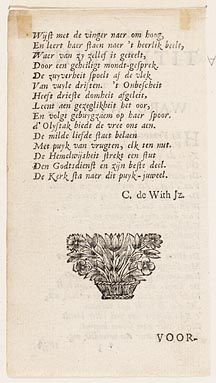 Wijst met de vinger naer om hoog,
En leert haer staen naer 't heerlik beelt,
Waer van zy zellef is geteelt,
Door een geheiligt mondt-gesprek.
De zuyverheit spoelt af de vlek
Van vuyle driften. 't Onbescheit
Heeft drieste domheit afgeleit,
Leent aen gezeglikheit het oor,
En volgt gebuygzaem op haer spoor.
d' Olyftak biedt de vree ons aen.
De milde liefde staet belaen
Met puyk van vrugten, elk ten nut.
De Hemelwijsheit strekt een stut
Den Godtsdienst en zijn beste deel.
De Kerk sta naer dit puyk-juweel.
C. de With Jz.
VOOR-